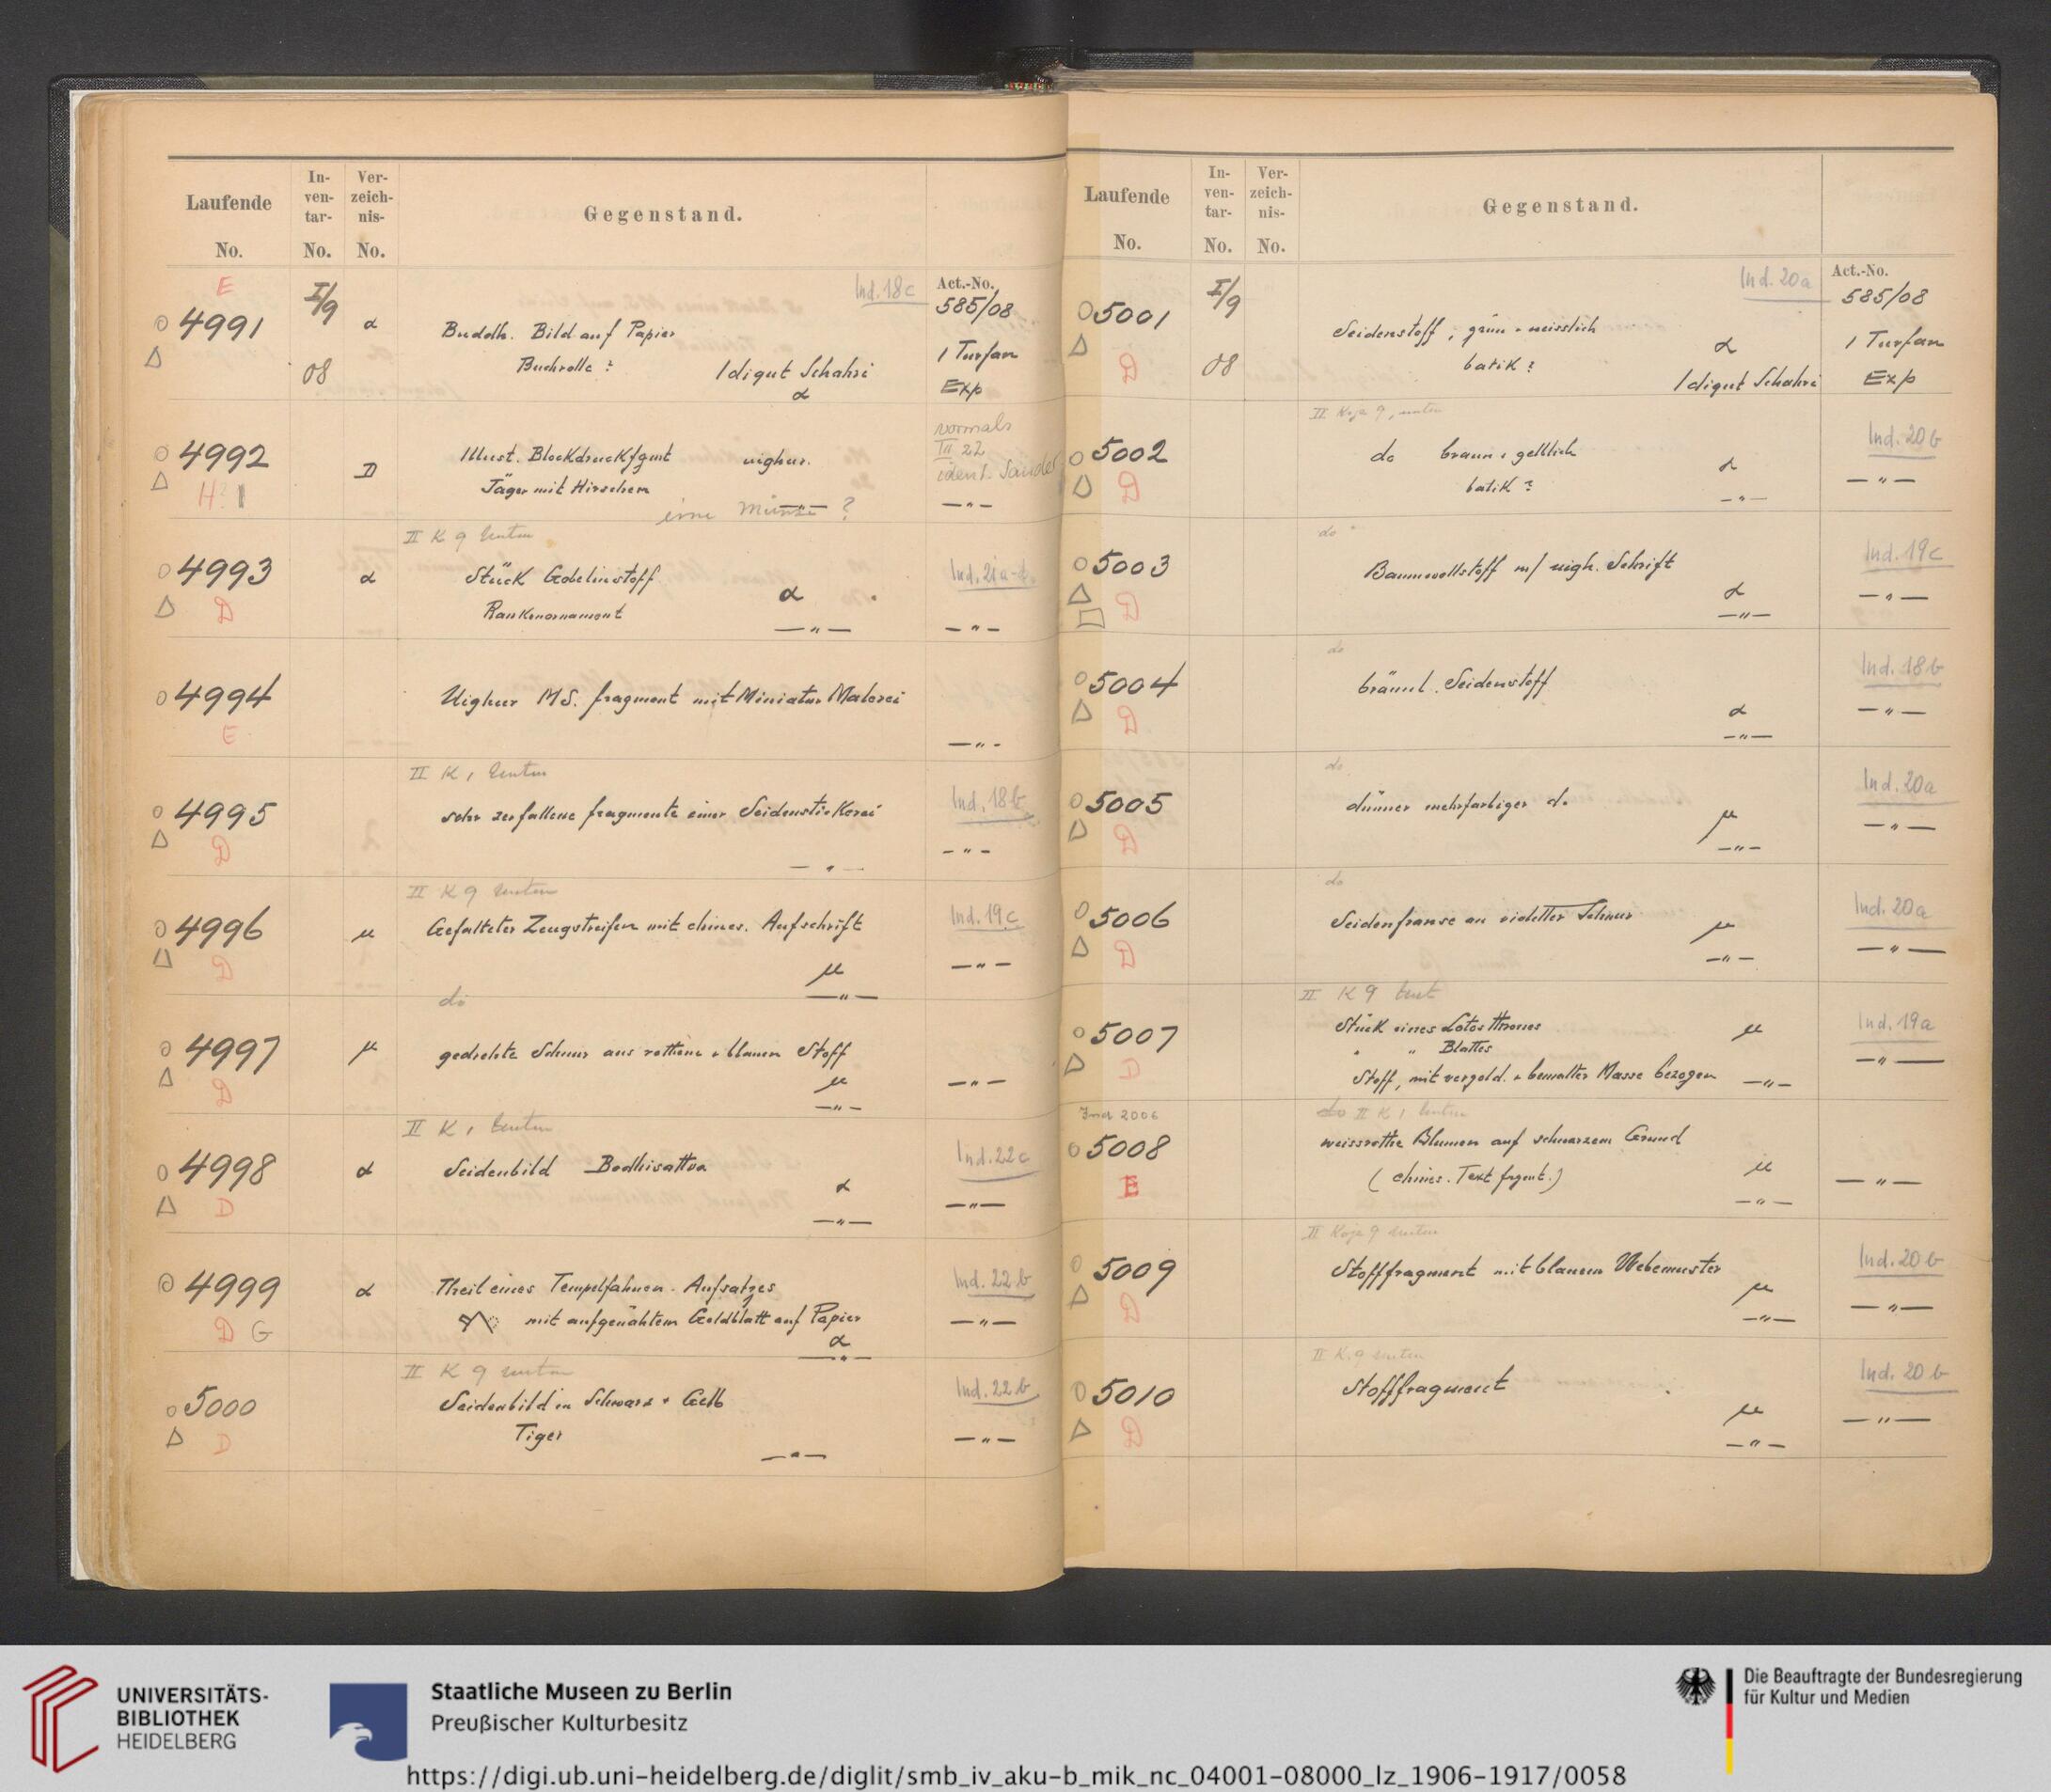 Laufende No.
In-ven-tar-No.
Ver-zeich-nis-No.
Gegenstand.
E
Ind. 18c
Act.-No.
4991
I/9 08
α
Buddh. Bild auf Papier
Buchrolle ?
Idigut Schahri
α
585/08
1 Turfan
Exp
4992
H?
D
Illust. Blockdruckfgmt uighur.
Jäger mit Hirschen
— " —
eine Münze ?
vormals
III 22
ident.
— " —
II K 9 unten
4993
D
α
Stück Gobelinstoff
α
Rankenornament
— " —
Ind. 21a
— " —
4994
E
Uighur MS. fragment mit Miniatur Malerei
— " —
II K 1 unten
4995
D
sehr zerfallene fragmente einer Seidenstickerei
— " —
Ind. 18b
— " —
II K 9 unten
4996
D
μ
Gefalteter Zeugstreifen mit chines. Aufschrift
μ
— " —
Ind. 19c
— " —
do
4997
D
μ
gedrehte Schnur aus rothem + blauem Stoff
μ
— " —
— " —
II K 1 unten
4998
D
α
Seidenbild Bodhisattva
α
— " —
Ind. 22c
— " —
4999
D G
α
Theil eines Tempelfahnen-Aufsatzes
mit aufgenähtem Goldblatt auf Papier
α
— " —
Ind. 22b
— " —
II K 9 unten
5000
D
Seidenbild in Schwarz + Gelb
Tiger
— " —
Ind. 22b
— " —
Laufende No.
In-ven-tar-No.
Ver-zeich-nis-No.
Gegenstand.
Ind. 20a
Act.-No.
5001
D
I/9 08
Seidenstoff, grün + weisslich
batik ?
α
Idigut Schahri
585/08
1 Turfan
Exp
II Koje 9, unten
5002
D
do braun + gelblich
batik ?
α
— " —
Ind. 20b
— " —
do
5003
D
Baumwollstoff m/ uigh. Schrift
α
— " —
Ind. 19c
— " —
do
5004
D
bräunl. Seidenstoff
α
— " —
Ind. 18b
— " —
do
5005
D
dünner mehrfarbiger do
μ
— " —
Ind. 20a
— " —
do
5006
D
Seidenfranse an violetter Schnur
μ
— " —
Ind. 20a
— " —
II K 9 unt
5007
D
Stück eines Lotos Thrones
" " Blattes
μ
Stoff, mit vergold. + bemalter Masse bezogen
— " —
Ind. 19a
— " —
Ind 2006
do II K 1 unten
5008
E
weissrothe Blumen auf schwarzem Grund
(chines. Text frgmt.)
μ
— " —
— " —
II Koje 9 unten
5009
D
Stofffragment mit blauem Webemuster
μ
— " —
Ind. 20b
— " —
II K. 9 unten
5010
D
Stofffragment
μ
— " —
Ind. 20b
— " —
UNIVERSITÄTS-
BIBLIOTHEK
HEIDELBERG
Staatliche Museen zu Berlin
Preußischer Kulturbesitz
Die Beauftragte der Bundesregierung
für Kultur und Medien
https://digi.ub.uni-heidelberg.de/diglit/smb_iv_aku-b_mik_nc_04001-08000_lz_1906-1917/0058